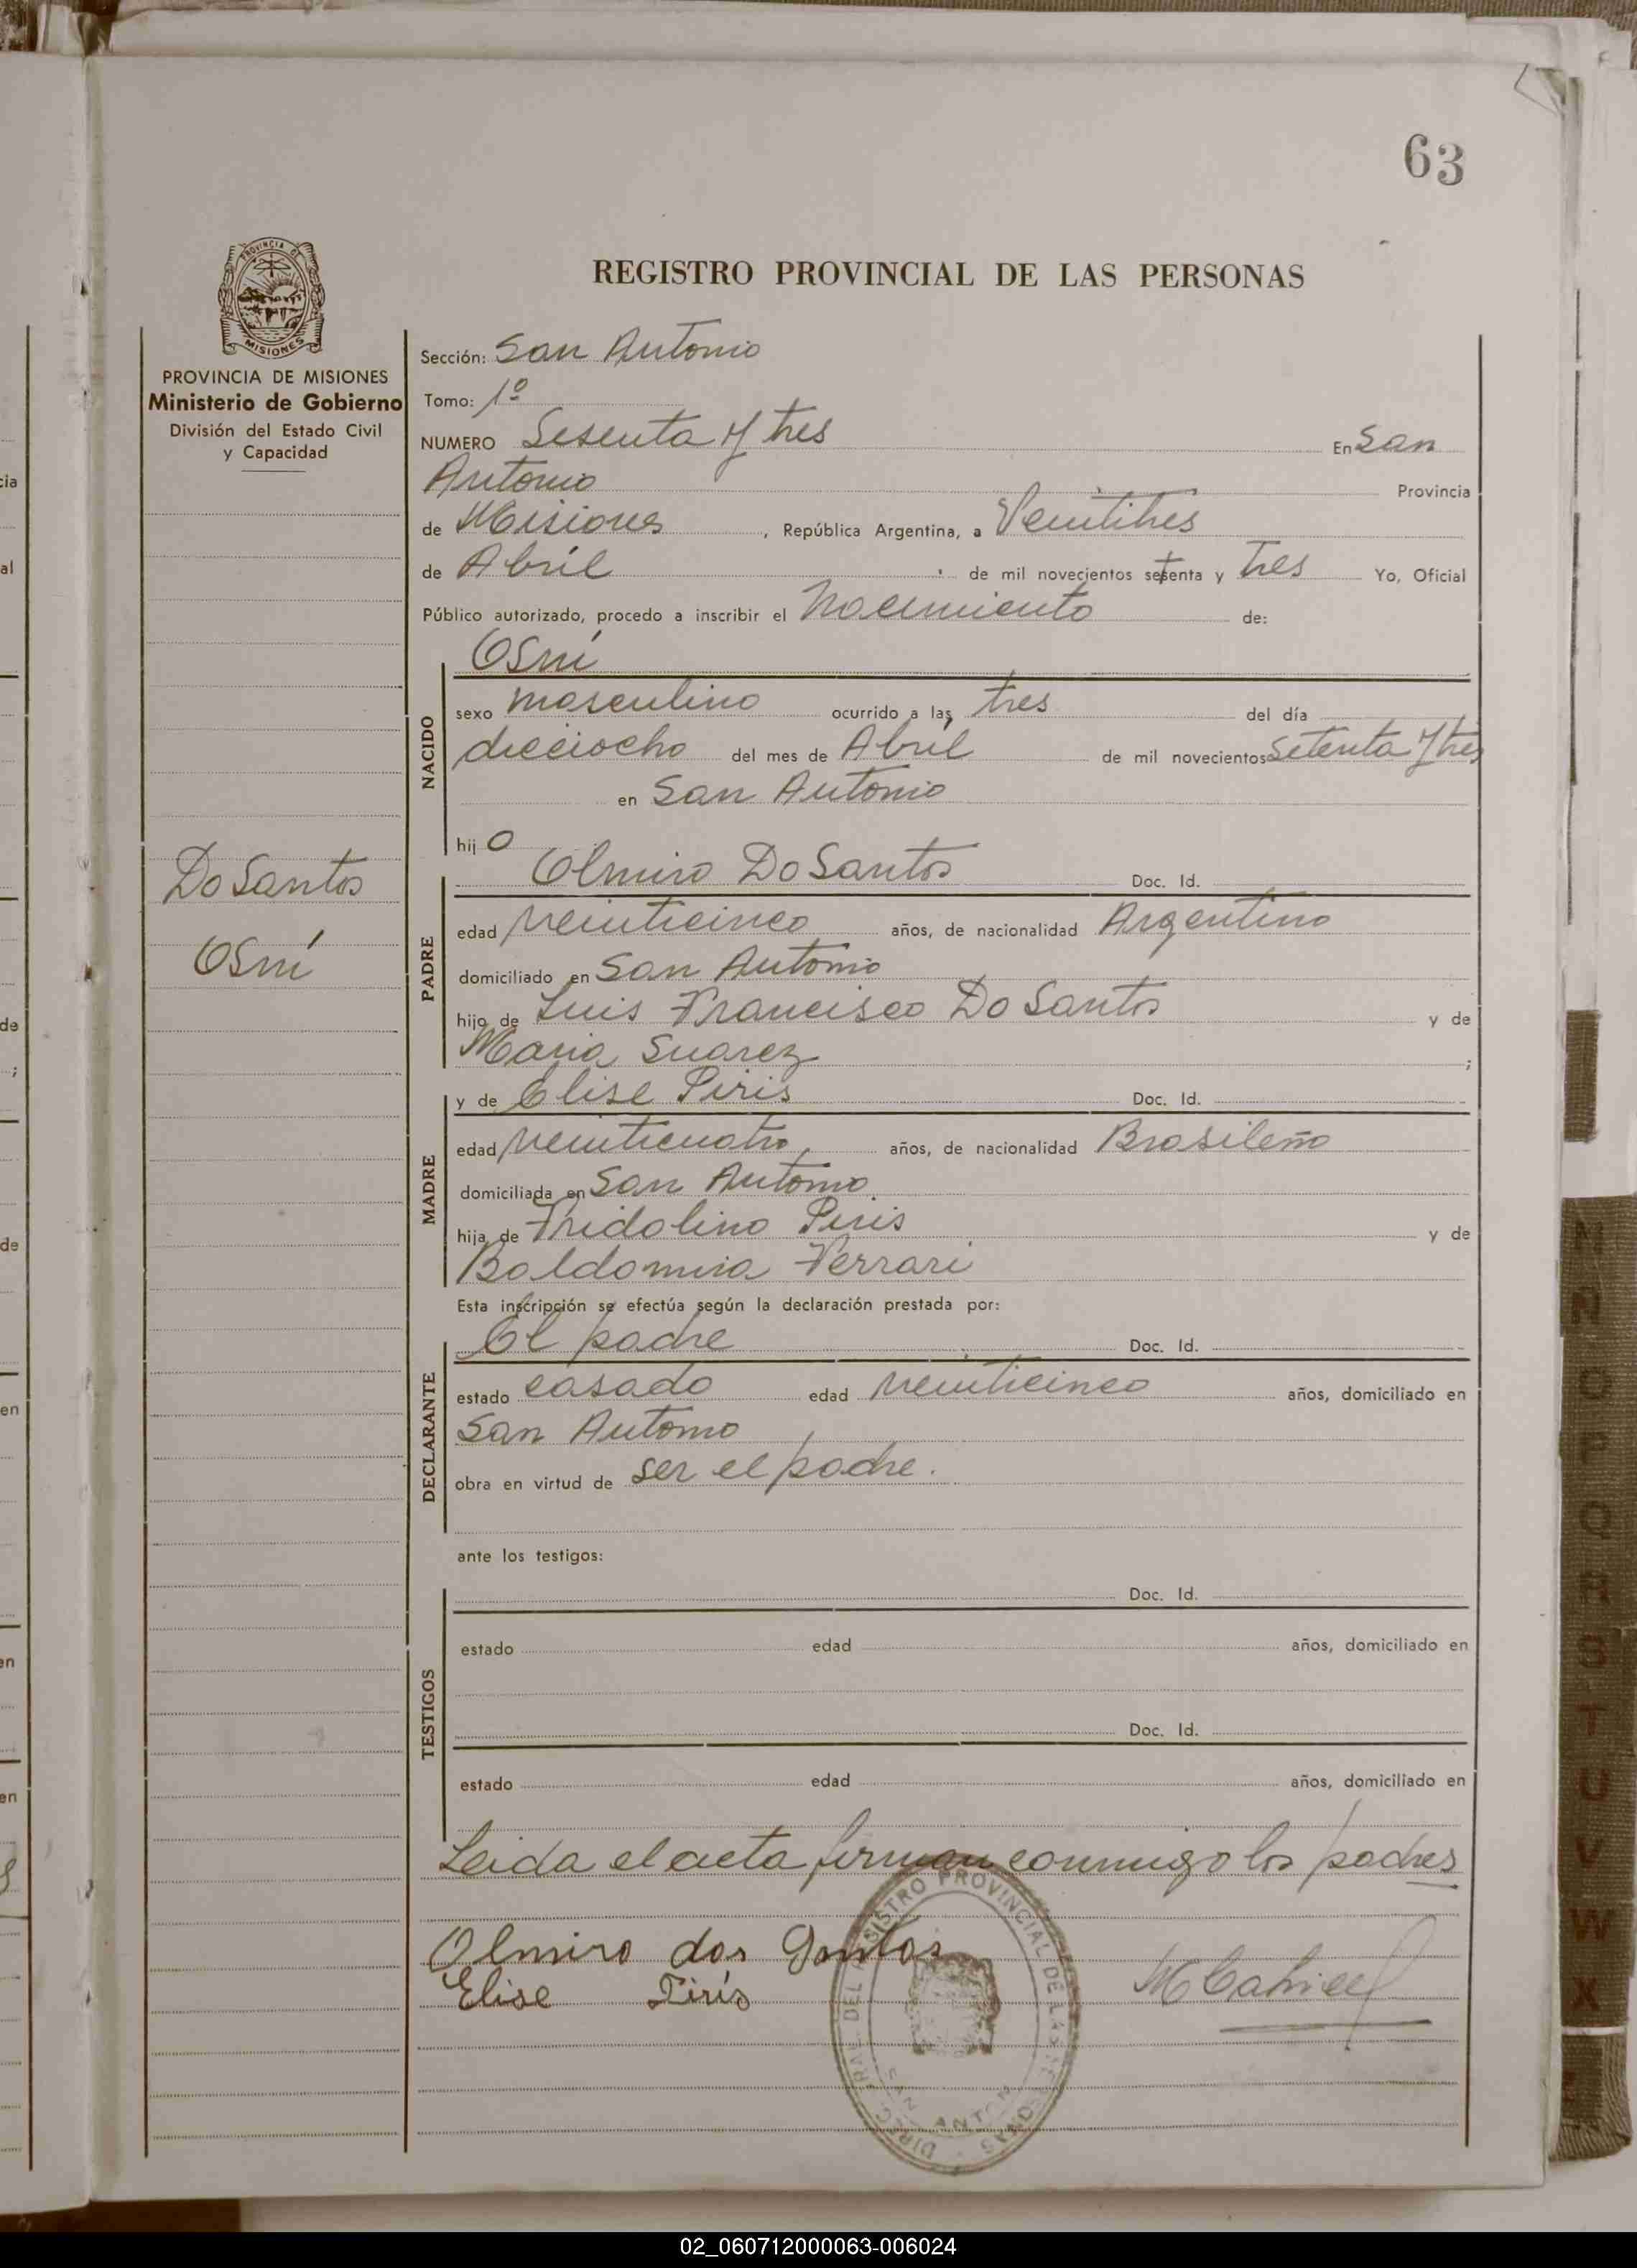 63
PROVINCIA DE
MISIONES
PROVINCIA DE MISIONES
Ministerio de Gobierno
División del Estado Civil
y Capacidad
REGISTRO PROVINCIAL DE LAS PERSONAS
Sección: San Antonio
Tomo: 1º
NUMERO Sesenta y tres En San
Antonio Provincia
de Misiones, República Argentina, a Veintitres
de Abríl de mil novecientos setenta y tres Yo, Oficial
Público autorizado, procedo a inscribir el Nacimiento de:
Osní
NACIDO
sexo masculino ocurrido a las tres del día
dieciocho del mes de Abríl de mil novecientos Setenta y tres
en San Antonio
hijo
Do Santos
Osní
PADRE
Olmiro Do Santos Doc. Id.
edad veinticinco años, de nacionalidad Argentino
domiciliado en San Antonio
hijo de Luis Francisco Do Santos y de
Maria Suarez ;
MADRE
y de Elise Piris Doc. Id.
edad veinticuatro años, de nacionalidad Brasileña
domiciliada en San Antonio
hija de Fridolino Piris y de
Baldomira Ferrari
Esta inscripción se efectúa según la declaración prestada por:
DECLARANTE
El padre Doc. Id.
estado casado edad veinticinco años, domiciliado en
San Antonio
obra en virtud de ser el padre.
ante los testigos:
TESTIGOS
Doc. Id.
estado edad años, domiciliado en
Doc. Id.
estado edad años, domiciliado en
Leida el acta firman conmigo los padres
Olmiro dos Santos
Elise Pirís
REGISTRO PROVINCIAL DE LAS PERSONAS
SAN ANTONIO
cia
al
de
;
de
en
en
en
M
N
O
P
Q
R
S
T
U
V
W
X
02_060712000063-006024